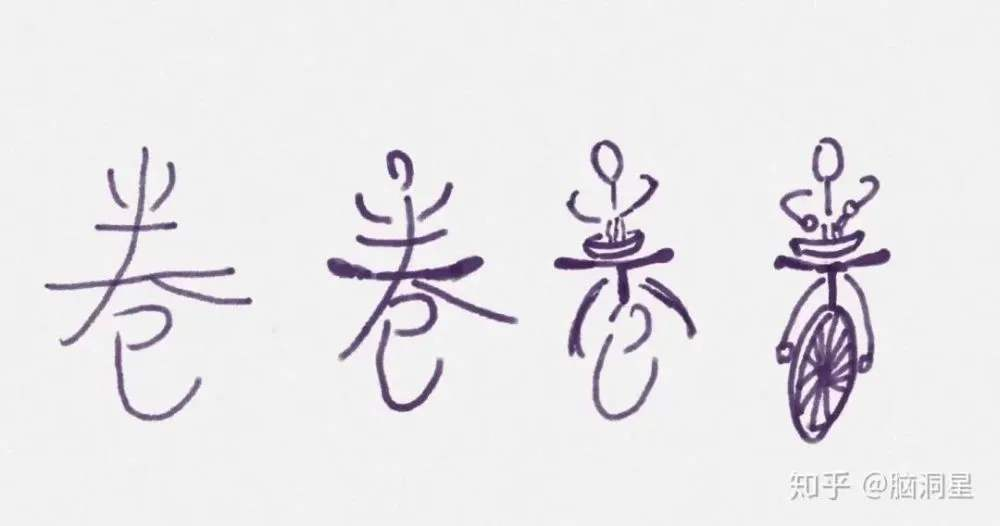 卷
知乎 @脑洞星